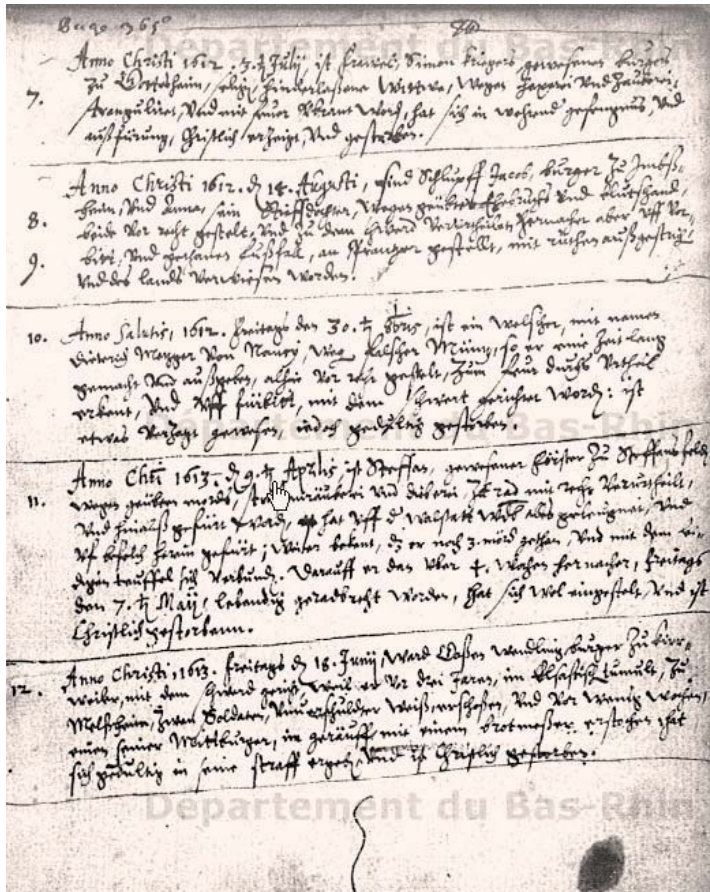 Anno Christi 1612. 3. Julij ist Simon Kriegers, gewesener burgers
7. zu hinderlassene Wittwe, Wegen Hexerei Vnd Zauberei
Vnd mit hat sich in wehrend gefengnus, Vnd
außfürung, Christlich erzeigt, Vnd gestorben.
Anno Christi 1612. d. 14. Augusti, sind Schlupff Jacob, burger zu
8. heim, Vnd Anna, sein Stieffdochter, Wegen geübten Ehebruchs Vnd blutschand,
beide Vor recht gestelt, Vnd zu dem schwerd Verurtheilt, hernacher aber Vff Vor-
9. bitt, Vnd gethanen fußfall, an pranger gestellt, mit ruthen außgestrichen
Vnd des lands Verwiesen worden.
10. Anno Salutis, 1612. freitags den 30. 8bris, ist ein Welscher, mit namen
Dieterich Metzger Von Nancy, weg falscher Müntz, so er eine Zeit lang
gemacht Vnd außgeben, alhie Vor recht gestelt, Zum feur durchs Vrtheil
erkent, Vnd Vff fürbitt, mit dem schwert gerichtet word: ist
etwas Verzagt gewesen, iedoch gedultig gestorben.
Anno Chri 1613. d. 9. Aprilis ist Steffan, gewesener förster zu Steffansfelden
11. wegen geübten mords, Vnd dieberei, Zum rad mit recht Verurtheilt,
Vnd hinauß gefürt word, hat Vff d. Walstatt alles geleugnet, Vnd
Vf befelch herein gefürt; Witer bekent, dz er noch 3. mörd gethan, Vnd mit dem lei-
digen teuffel sich Verbund. Darauff er dan Vber 4. Wochen hernacher, freitags
den 7. Maij, lebendig geradbrecht worden, hat sich wol eingestelt, Vnd ist
Christlich gestorben.
12. Anno Christi, 1613. freitags d. 18. Junij, ward Wendling, burger zu Kirr-
weiler, mit dem schwerd gericht, weil er Vor drei Jaren, im Elsasisch tumult, zu
Melsheim, Zwen Soldaten, Vnuerschulder Weiß, erschoßen, Vnd Vor wenig wochen,
einen seiner Mittburger, im geräuff mit einem brotmeßer erstochen hat
sich gedultig in seine straff ergeb, Vnd ist Christlich gestorben.
Département du Bas-Rhin
Département du Bas-Rhin
Département du Bas-Rhin